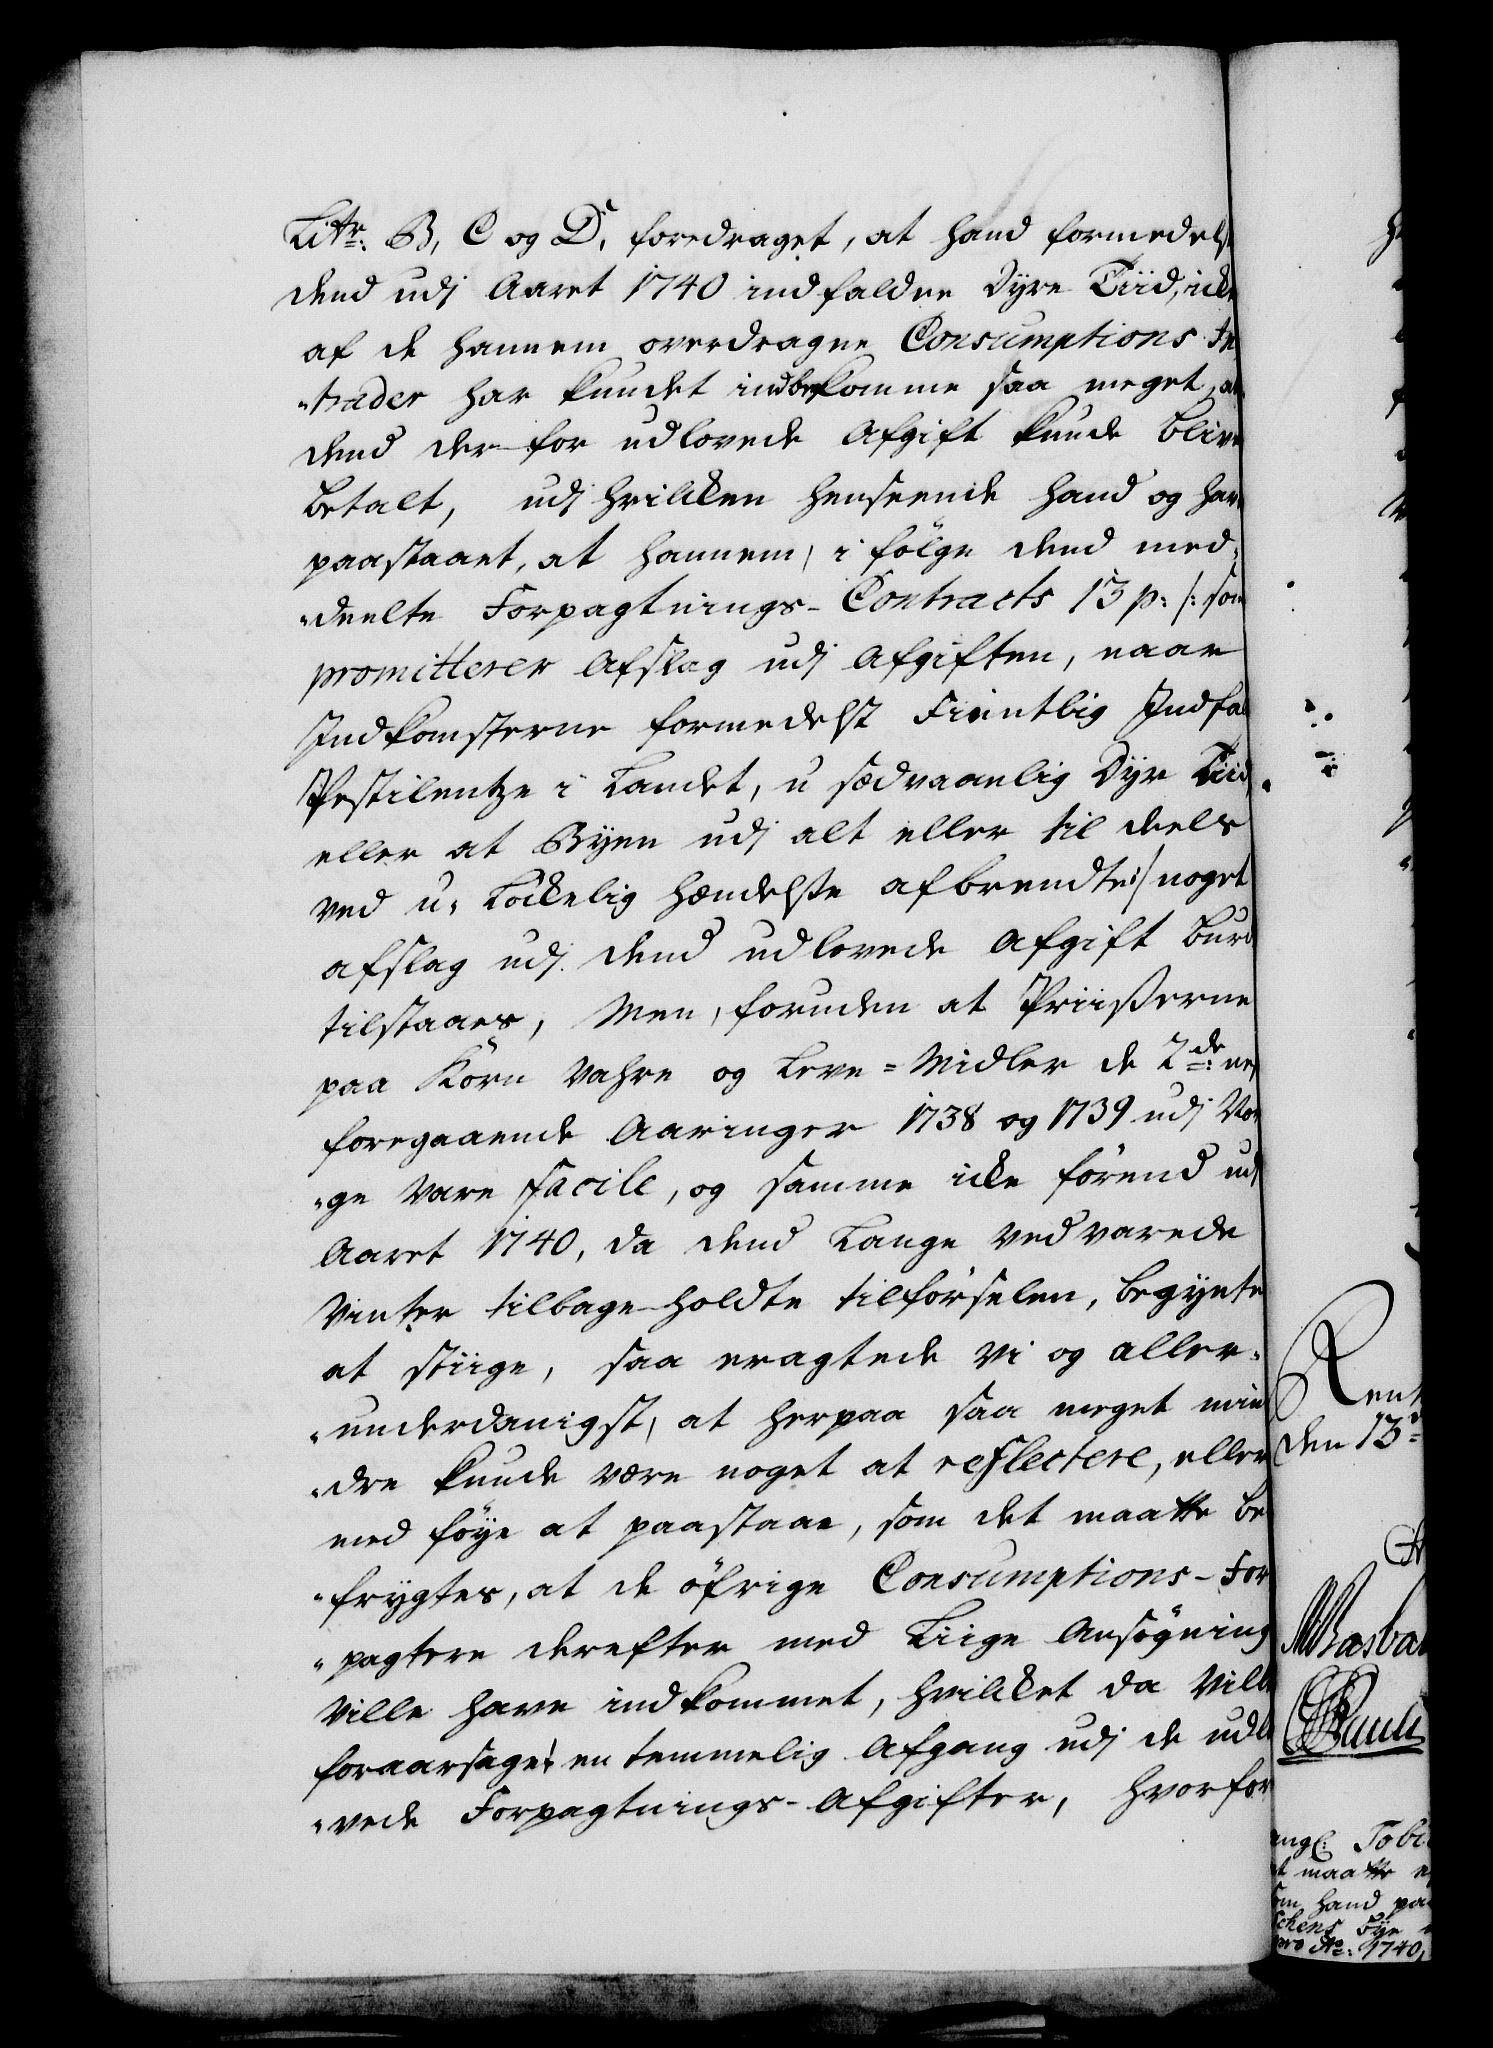 Litr: B, C og D, foredraget, at hand formedelst
dend udj Aaret 1740 indfaldne Dyre Tiid, icke
af de hannem overdragne Consumptions In
"trader har kundet indbekomme saa meget, at
dend der for udlovede Afgift kunde blive
betalt, udj hvilcken henseende hand og har
paastaaet, at hannem, i følge dend med-
"deelte Forpagtnings-Contracts 13 p: /: som
promitterer Afslag udj Afgiften, naar
Indkomsterne formedelst Fientlig Indfal
Pestilentze i Landet, u sædvaanlig Dyr Tiid,
eller at Byen udj alt eller til deels
ved u-Löckelig Hændelse afbrendte :/ noget
afslag udj dend udlovede Afgift burde
tilstaaes, Men, foruden at Priiserne
paa Korn Vahre og Leve-Midler de 2de
foregaaende Aaringer 1738 og 1739 udj Nor
"ge vare facile, og samme icke förend udj
Aaret 1740, da dend Lange vedvarede
Vinter tilbage-holdte tilförselen, begynte
at stiige, saa eragtede vi og aller-
"underdanigst, at herpaa saa meget min
"dre kunde være noget at reflectere, eller
med föye at paastaae, som det maatte be
"frygtes, at de öfrige Consumptions-For
"pagtere derefter med Liige Ansögning
Ville have indkommet, hvilcket da Ville
foraarsaget en temmelig Afgang udj de udlo
"vede Forpagtnings-Afgifter, hvorfor
Rent
den 13
ngl: Tobi
maatte
hand paa
chens
Ao: 1740,